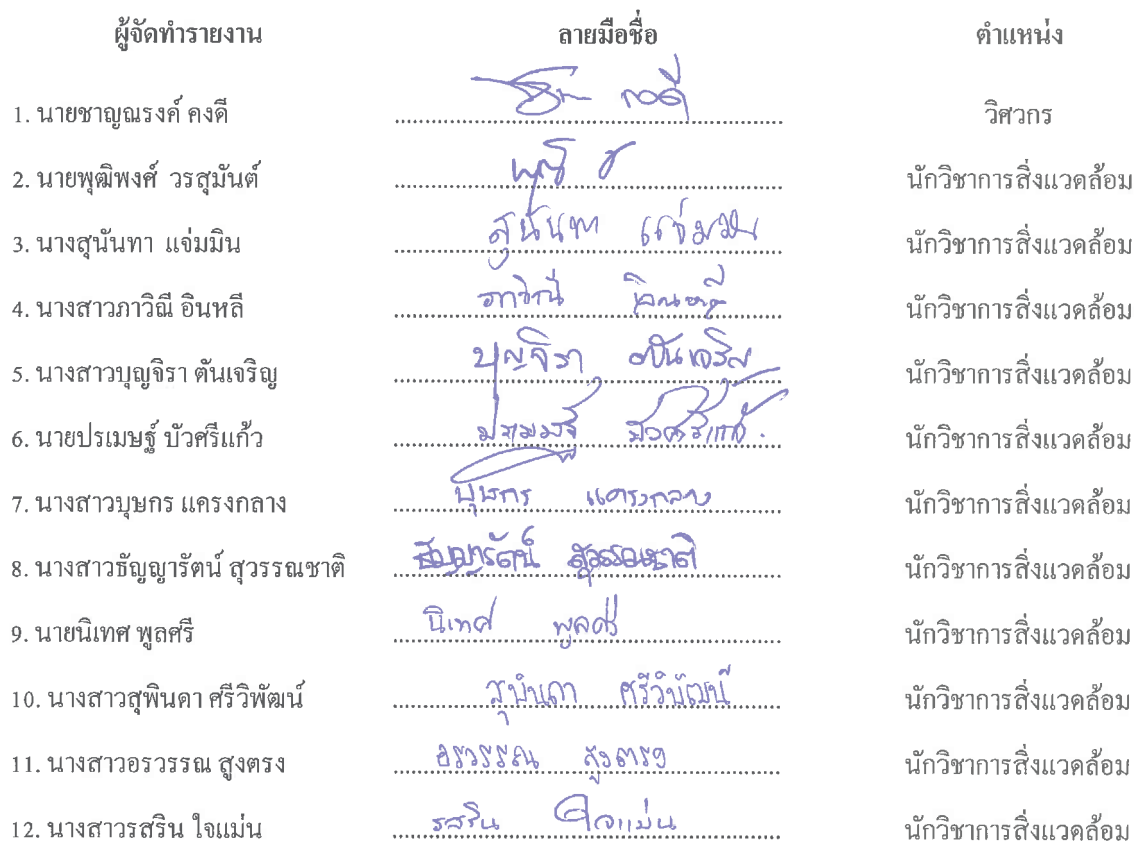 ผู้จัดทำรายงาน ลายมือชื่อ ตำแหน่ง
1. นายชาญณรงค์ คงดี วิศวกร
2. นายพุฒิพงศ์ วรสุมันต์ นักวิชาการสิ่งแวดล้อม
3. นางสุนันทา แจ่มมิน สุนันทา แจ่มมิน นักวิชาการสิ่งแวดล้อม
4. นางสาวภาวิณี อินหลี ภาวิณี อินหลี นักวิชาการสิ่งแวดล้อม
5. นางสาวบุญจิรา ตันเจริญ บุญจิรา ตันเจริญ นักวิชาการสิ่งแวดล้อม
6. นายปรเมษฐ์ บัวศรีแก้ว ปรเมษฐ์ บัวศรีแก้ว นักวิชาการสิ่งแวดล้อม
7. นางสาวบุษกร แครงกลาง บุษกร แครงกลาง นักวิชาการสิ่งแวดล้อม
8. นางสาวธัญญารัตน์ สุวรรณชาติ ธัญญารัตน์ สุวรรณชาติ นักวิชาการสิ่งแวดล้อม
9. นายนิเทศ พูลศรี นิเทศ พูลศรี นักวิชาการสิ่งแวดล้อม
10. นางสาวสุพินดา ศรีวิพัฒน์ สุพินดา ศรีวิพัฒน์ นักวิชาการสิ่งแวดล้อม
11. นางสาวอรวรรณ สูงตรง อรวรรณ สูงตรง นักวิชาการสิ่งแวดล้อม
12. นางสาวรสริน ใจแม่น รสริน ใจแม่น นักวิชาการสิ่งแวดล้อม